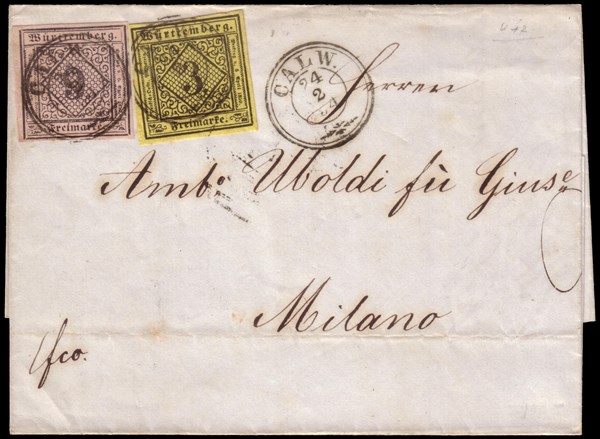 Württemberg.
9
Freimarke.
Württemberg.
3
Freimarke.
CALW.
24
2
Herren
Ambᵒ Uboldi fù Giusᵉ
Milano
fco.